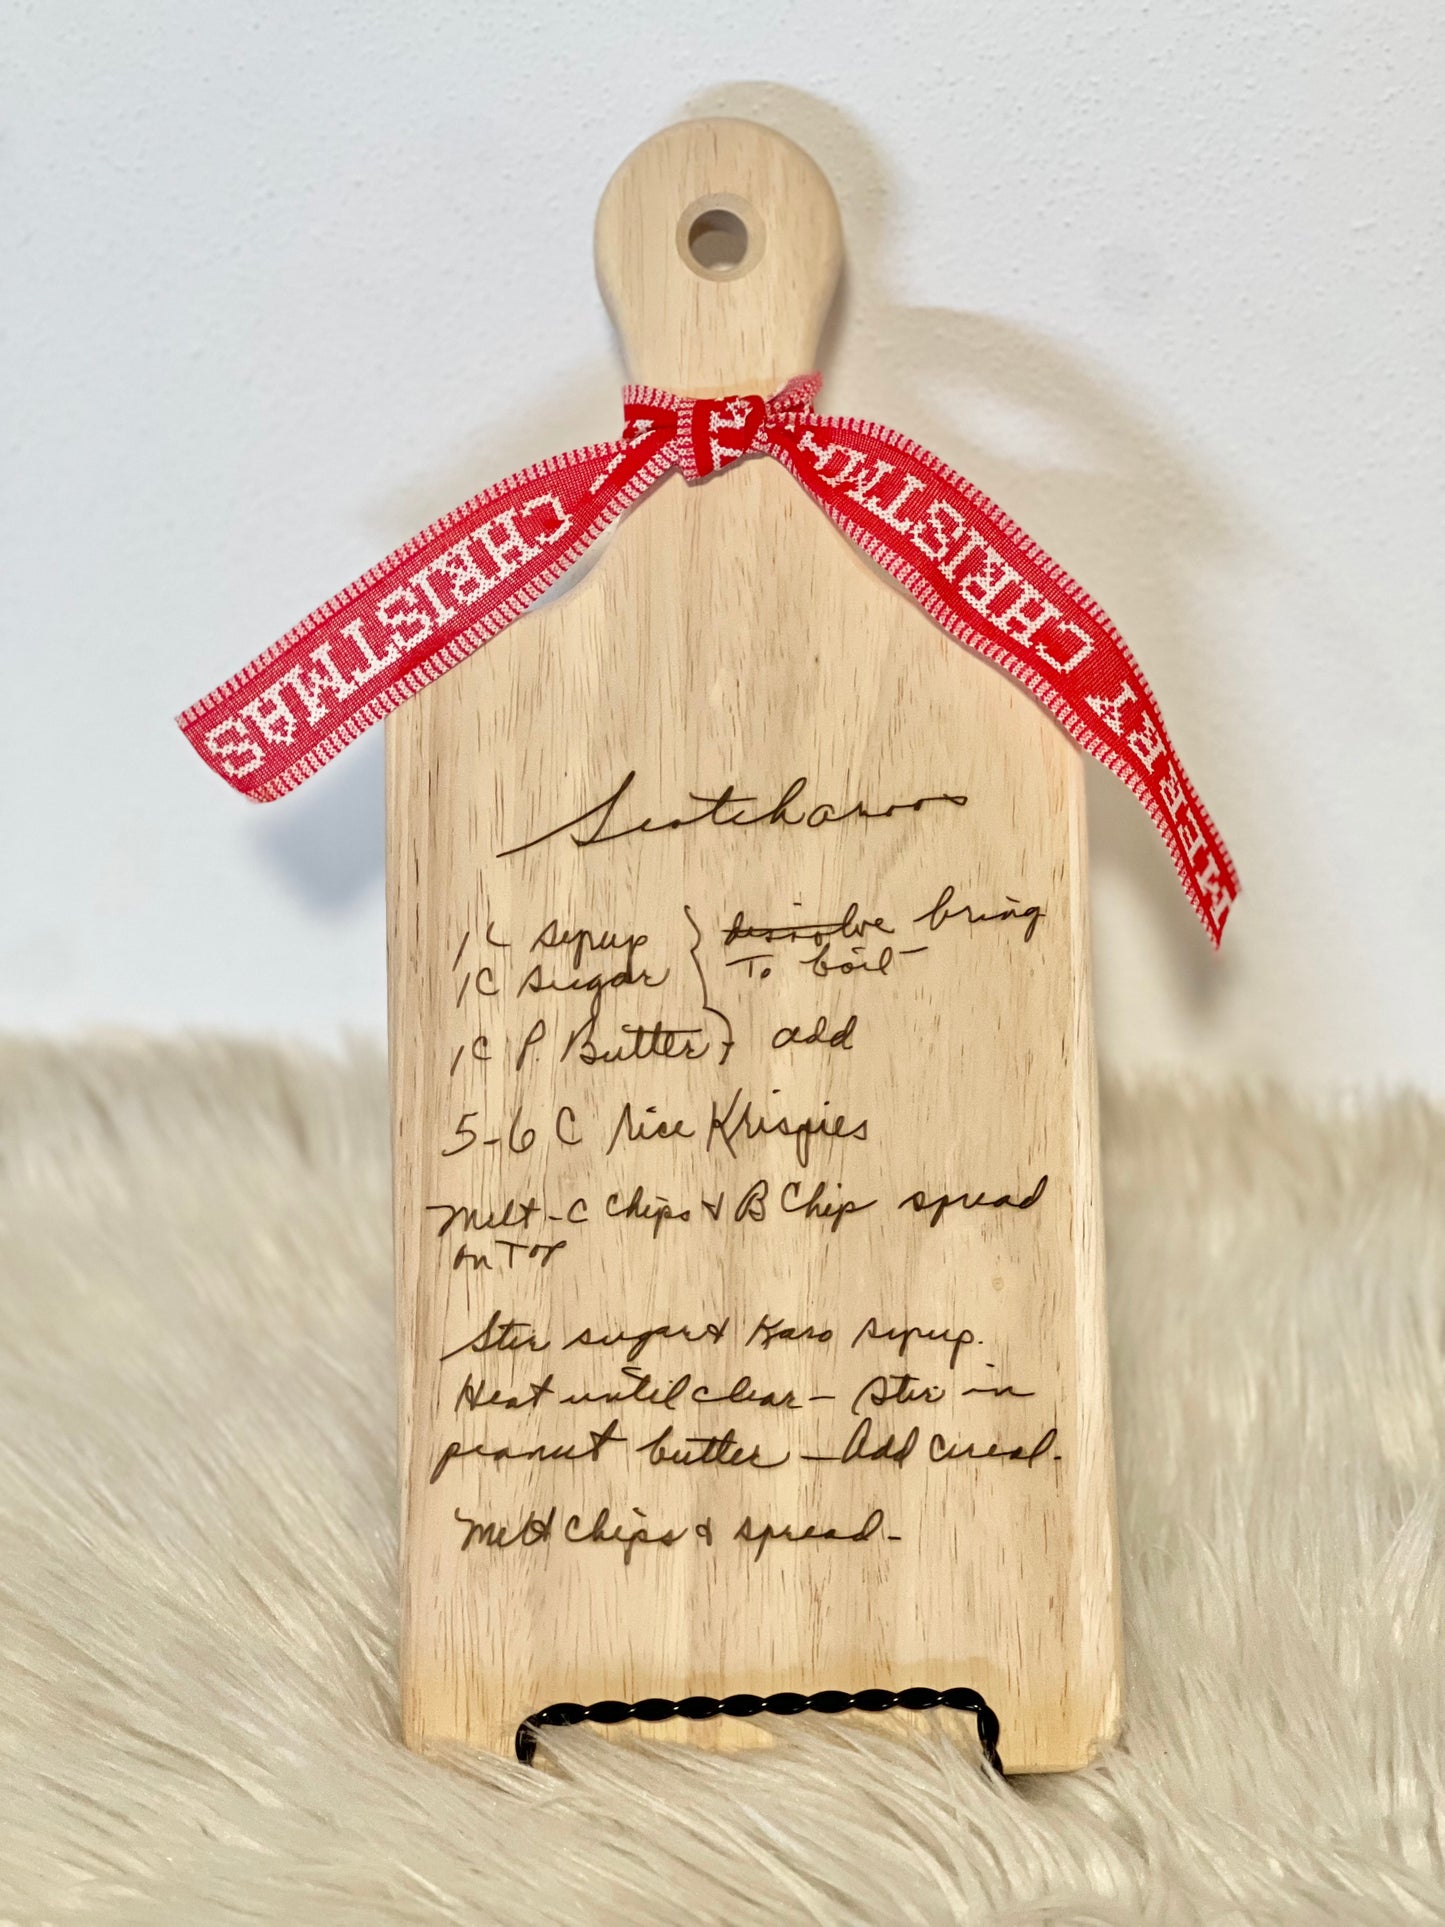 CHRISTMAS
MERRY CHRISTMA
Scotcharoos
1 C syrup } dissolve bring
1C sugar To boil
1C P. Butter } add
5-6 C rice Krispies
Melt - C Chips & B Chip spread
on Top
Stir sugar & Karo syrup.
Heat until clear - Stir in
peanut butter - Add cereal.
Melt chips & spread -